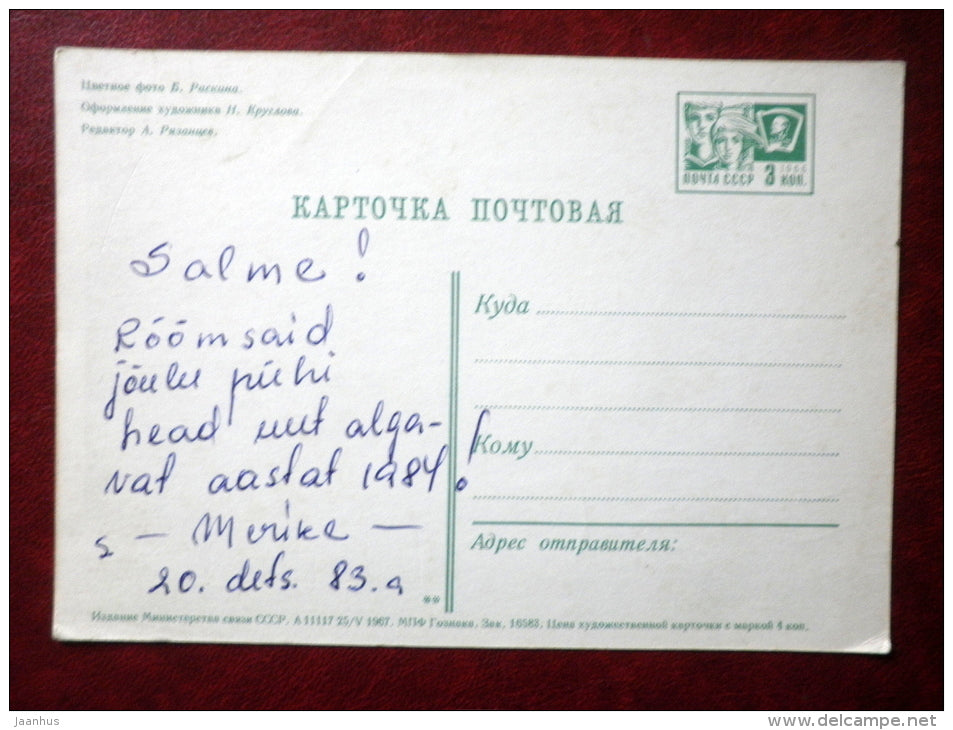 Цветное фото Б. Раскина.
Оформление художника Н. Круглова.
Редактор А. Рязанцев.
1966
ПОЧТА СССР 3 КОП.
КАРТОЧКА ПОЧТОВАЯ
Salme!
Rõõmsaid
jõulu pühi
head uut alga-
vat aastat 1984!
s — Merike —
20. dets. 83. a
Куда
Кому
Адрес отправителя:
**
Издание Министерства связи СССР. А 11117 25/V 1967. МПФ Гознака. Зак. 16583. Цена художественной карточки с маркой 4 коп.
Jaanhus
www.delcampe.net